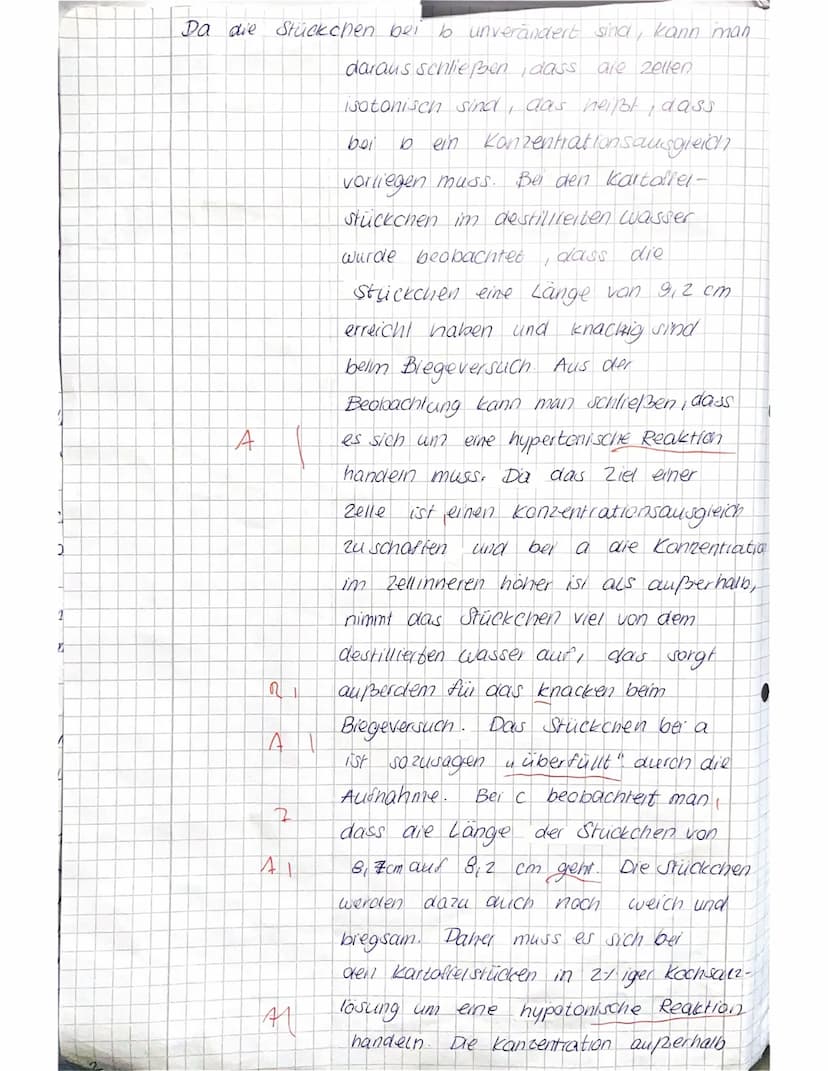 Da die Stückchen bei b unverändert sind, kann man
daraus schließen, dass die Zellen
isotonisch sind, das heißt, dass
bei b ein Konzentrationsausgleich
vorliegen muss. Bei den Kartoffel-
stückchen im destillierten Wasser
wurde beobachtet, dass die
Stückchen eine Länge von 9,2 cm
erreicht haben und knackig sind
beim Biegeversuch. Aus der
Beobachtung kann man schließen, dass
A | es sich um eine hypertonische Reaktion
handeln muss. Da das Ziel einer
Zelle ist, einen Konzentrationsausgleich
zu schaffen und bei a die Konzentratio
im Zellinneren höher ist als außerhalb,
nimmt das Stückchen viel von dem
destillierten Wasser auf, das sorgt
R | außerdem für das knacken beim
Biegeversuch. Das Stückchen bei a
A | ist sozusagen „überfüllt" durch die
Aufnahme. Bei c beobachtet man,
Z dass die Länge der Stückchen von
A | 8,7cm auf 8,2 cm geht. Die Stückchen
werden dazu auch noch weich und
biegsam. Daher muss es sich bei
den Kartoffelstücken in 2%iger Kochsalz-
A | lösung um eine hypotonische Reaktion
handeln. Die Konzentration außerhalb